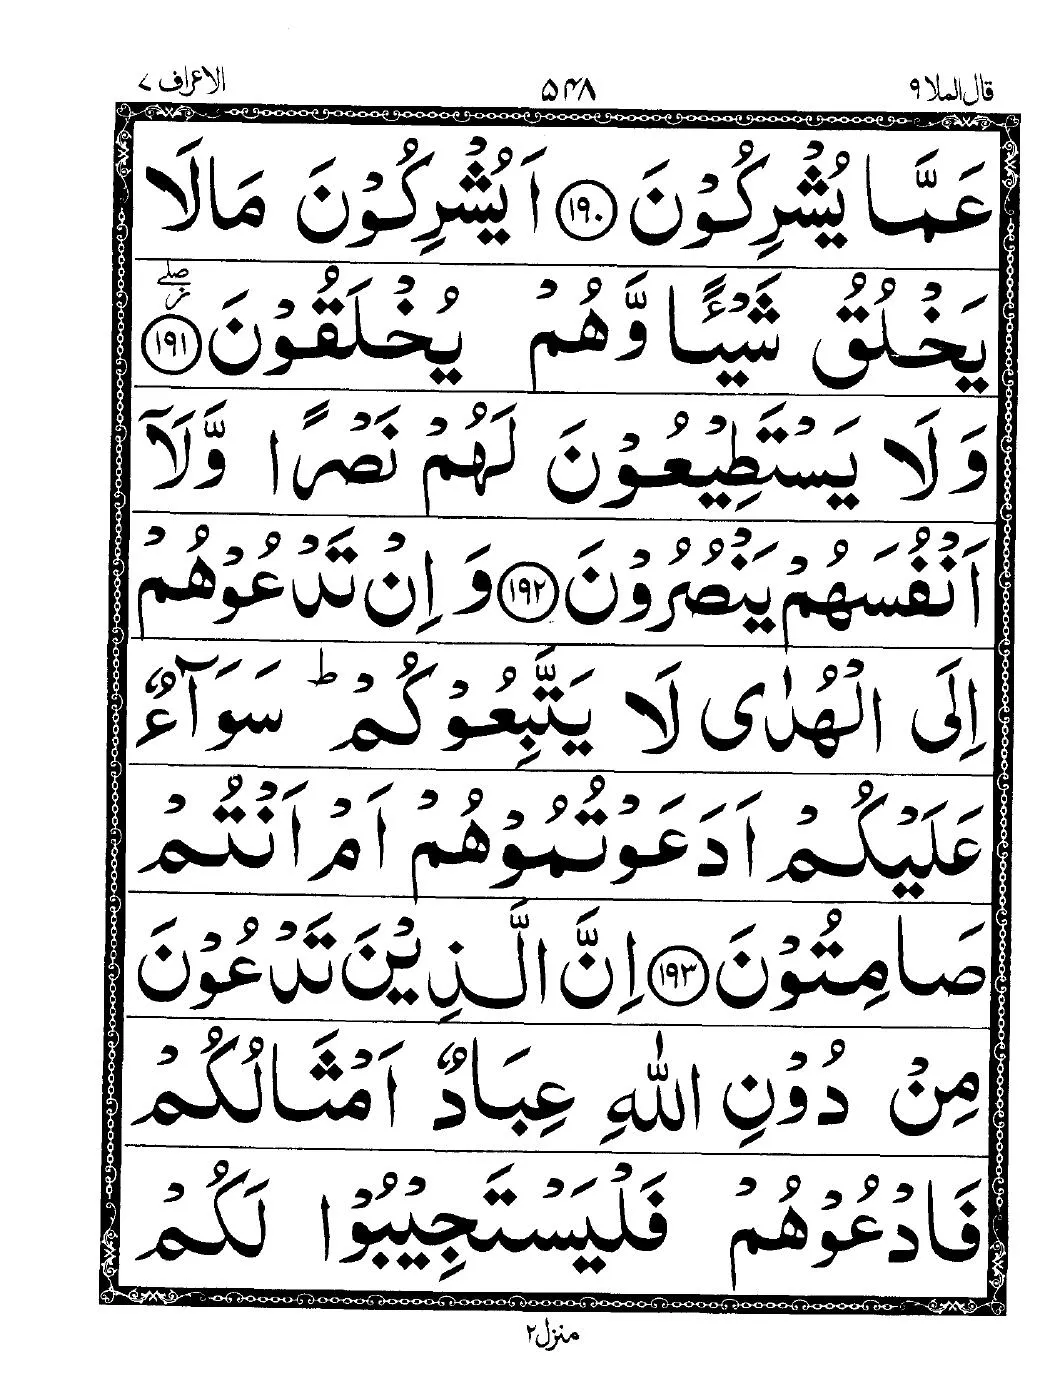 قال الملا ٩
۵۴۸
الاعراف ٧
عَمَّا يُشْرِكُوْنَ ﴿١٩٠﴾ اَيُشْرِكُوْنَ مَالَا
يَخْلُقُ شَيْـًٔا وَّهُمْ يُخْلَقُوْنَ ﴿١٩١﴾ صلے
وَلَا يَسْتَطِيْعُوْنَ لَهُمْ نَصْرًا وَّلَآ
اَنْفُسَهُمْ يَنْصُرُوْنَ ﴿١٩٢﴾ وَاِنْ تَدْعُوْهُمْ
اِلَى الْهُدٰى لَا يَتَّبِعُوْكُمْ ؕ سَوَآءٌ
عَلَيْكُمْ اَدَعَوْتُمُوْهُمْ اَمْ اَنْتُمْ
صَامِتُوْنَ ﴿١٩٣﴾ اِنَّ الَّذِيْنَ تَدْعُوْنَ
مِنْ دُوْنِ اللّٰهِ عِبَادٌ اَمْثَالُكُمْ
فَادْعُوْهُمْ فَلْيَسْتَجِيْبُوْا لَكُمْ
منزل ٢